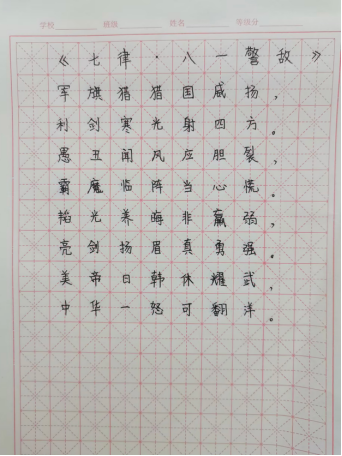 学校 班级 姓名 等级分
《七律·八一警敌》
军旗猎猎国威扬，
利剑寒光射四方。
愚丑闻风应胆裂，
霸魔临阵当心慌。
韬光养晦非羸弱，
亮剑扬眉真勇强。
美帝日韩休耀武，
中华一怒可翻洋。